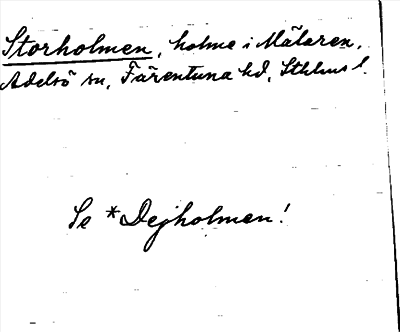 Storholmen, holme i Mälaren,
Adelsö sn, Färentuna hd, Sthlms l.
Se *Dejholmen!